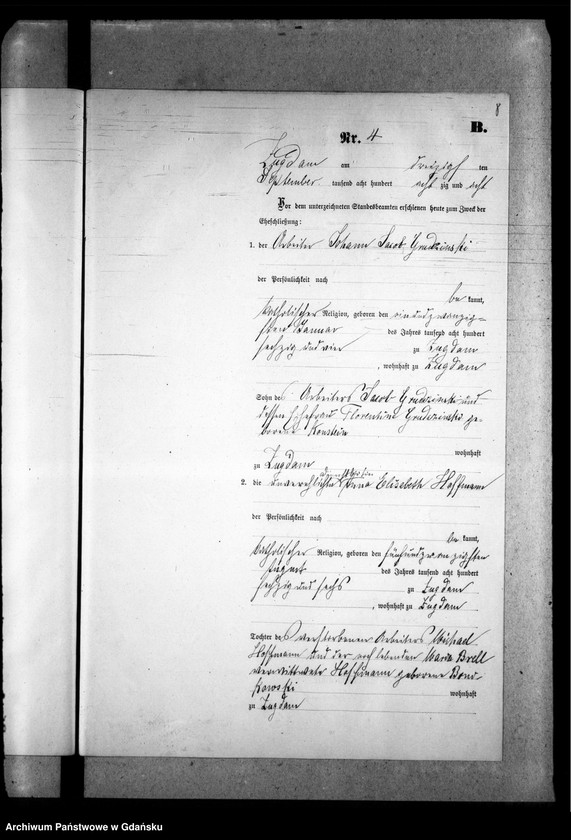 8
B.
Nr. 4
Zugdam am dreizigsten
September tausend acht hundert acht zig und acht
Vor dem unterzeichneten Standesbeamten erschienen heute zum Zweck der
Eheschließung:
1. der Arbeiter Johann Jacob Grudzinski
der Persönlichkeit nach
be kannt,
katholischer Religion, geboren den einundzwanzig=
sten Januar des Jahres tausend acht hundert
sechzig und vier zu Zugdam
, wohnhaft zu Zugdam
Sohn des Arbeiters Jacob Grudzinski und
dessen Ehefrau Florentine Grudzinski ge-
borene
wohnhaft
zu Zugdam
2. die unverehlichte Anna Elisabeth Hoffmann
der Persönlichkeit nach
be kannt,
katholischer Religion, geboren den fünfundzwanzigsten
August des Jahres tausend acht hundert
sechzig und sechs zu Zugdam
, wohnhaft zu Zugdam
Tochter des verstorbenen Arbeiters Michael
Hoffmann und der noch lebenden Maria Brell
verwittwete Hoffmann geborene Bond-
kowski wohnhaft
zu Zugdam
Archiwum Państwowe w Gdańsku